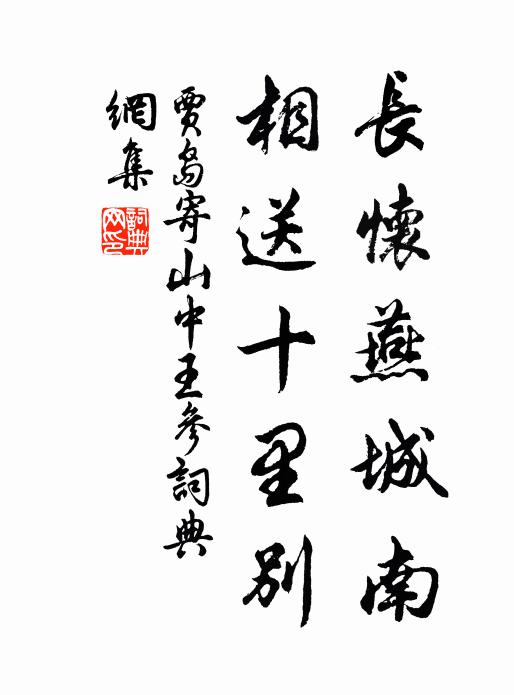 長懷燕城南
相送十里別
賈島寄山中王參詞典
網集
詞典網印